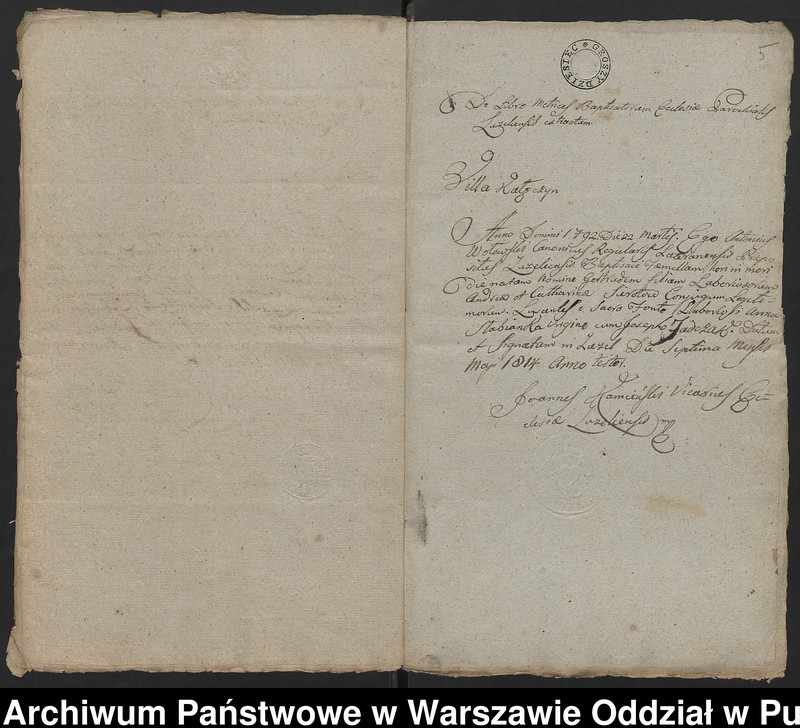 5
DZIESIĘĆ GROSZY
De Libro Metrices Baptisatorum Ecclesiæ Parochialis
Luzeliensis extractum
Villa Kałęczyn
Anno Domini 1792 Die 22 Martij. Ego Antonius
Wołowski Canonicus Regularis Lateranensis Præpo
situs Luzeliensis Baptisavi Femellam hori
die natam Nomine Gertrudem filiam Laboriosorum
Andreæ et Catharinæ Conjugum Legiti
morum. Levantes e Sacro Fonte Laboriosi Anna
Stabianka Virgine cum Josepho Datum
et Signatum in Luzel Die Septima Mensis
Maji 1814 Anno testor.
Joannes Kamieński Vicarius Ec=
clesiæ Luzeliensis mp
Archiwum Państwowe w Warszawie Oddział w Pu